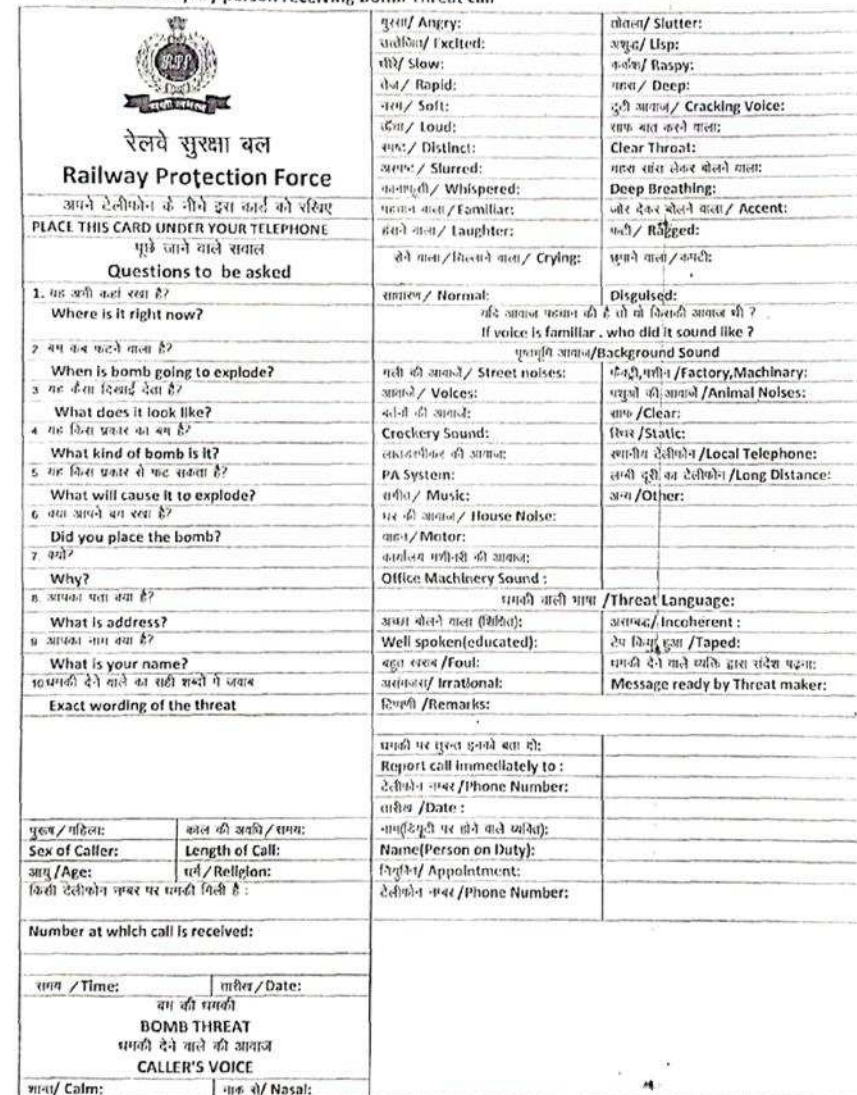 person receiving Bomb Threat call
RPF
रेलवे सुरक्षा बल
Railway Protection Force
अपने टेलीफोन के नीचे इस कार्ड को रखिए
PLACE THIS CARD UNDER YOUR TELEPHONE
पूछे जाने वाले सवाल
Questions to be asked
1. यह अभी कहां रखा है?
Where is it right now?
2 बम कब फटने वाला है?
When is bomb going to explode?
3 यह कैसा दिखाई देता है?
What does it look like?
4 यह किस प्रकार का बम है?
What kind of bomb is it?
5 यह किस प्रकार से फट सकता है?
What will cause it to explode?
6 क्या आपने बम रखा है?
Did you place the bomb?
7. क्यों?
Why?
8. आपका पता क्या है?
What is address?
9 आपका नाम क्या है?
What is your name?
10 धमकी देने वाले का सही शब्दों में जवाब
Exact wording of the threat
पुरूष/महिला: काल की अवधि/समय:
Sex of Caller: Length of Call:
आयु/Age: धर्म/Religion:
किसी टेलीफोन नम्बर पर धमकी मिली है :
Number at which call is received:
समय /Time: तारीख/Date:
बम की धमकी
BOMB THREAT
धमकी देने वाले की आवाज
CALLER'S VOICE
शान्त/ Calm: नाक से/ Nasal:
गुस्सा/ Angry: तोतला/ Slutter:
उत्तेजित/ Excited: अशुद्ध/ Lisp:
धीरे/ Slow: कर्कश/ Raspy:
तेज/ Rapid: गहरा/ Deep:
नरम/ Soft: टूटी आवाज/ Cracking Voice:
ऊँचा/ Loud: साफ बात करने वाला:
स्पष्ट/ Distinct: Clear Throat:
अस्पष्ट/ Slurred: गहरा सांस लेकर बोलने वाला:
कानाफूसी/ Whispered: Deep Breathing:
पहचान वाला/Familiar: जोर देकर बोलने वाला/ Accent:
हंसने वाला/ Laughter: फटी/ Ragged:
रोने वाला/चिल्लाने वाला/ Crying: छुपाने वाला/कपटी:
साधारण/ Normal: Disguised:
यदि आवाज पहचान की है तो वो किसकी आवाज थी ?
If voice is familiar . who did it sound like ?
पृष्ठभूमि आवाज/Background Sound
गली की आवाजें/ Street noises: फैक्ट्री,मशीन /Factory,Machinary:
आवाजें/ Voices: पशुओं की आवाजें /Animal Noises:
बर्तनों की आवाजें: साफ /Clear:
Crockery Sound: स्थिर /Static:
लाऊडस्पीकर की आवाज: स्थानीय टेलीफोन /Local Telephone:
PA System: लम्बी दूरी का टेलीफोन /Long Distance:
संगीत/ Music: अन्य /Other:
घर की आवाज/ House Noise:
वाहन/ Motor:
कार्यालय मशीनरी की आवाज:
Office Machinery Sound :
धमकी वाली भाषा /Threat Language:
अच्छा बोलने वाला (शिक्षित): असम्बद्ध/ Incoherent :
Well spoken(educated): टेप किया हुआ /Taped:
बहुत खराब /Foul: धमकी देने वाले व्यक्ति द्वारा संदेश पढ़ना:
असंगजस/ Irrational: Message ready by Threat maker:
टिप्पणी /Remarks:
धमकी पर तुरन्त इनको बता दो:
Report call immediately to :
टेलीफोन नम्बर /Phone Number:
तारीख /Date :
नाम(डियूटी पर होने वाले व्यक्ति):
Name(Person on Duty):
नियुक्ति/ Appointment:
टेलीफोन नम्बर /Phone Number: